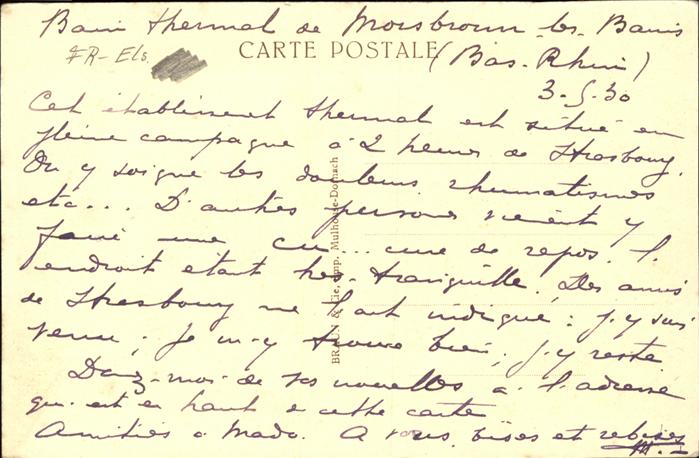 Bain thermal de Morsbronn-les-Bains
FR-Els.
CARTE POSTALE
(Bas-Rhin)
3-5-30
Cet établissement thermal est situé en
pleine campagne à 2 heures de Strasbourg.
On y soigne les douleurs, rhumatismes
etc... D'autres personnes viennent y
faire une cu... cure de repos. L'
endroit étant très tranquille. Des amis
de Strasbourg me l'ont indiqué : j'y suis
venu ; je m'y trouve bien ; j'y reste
Donnez-moi de vos nouvelles à l'adresse
qui est en haut de cette carte
Amitiés à Mado. A vous, bises et rebises
BRAUN & Cie, imp. Mulhouse-Dornach